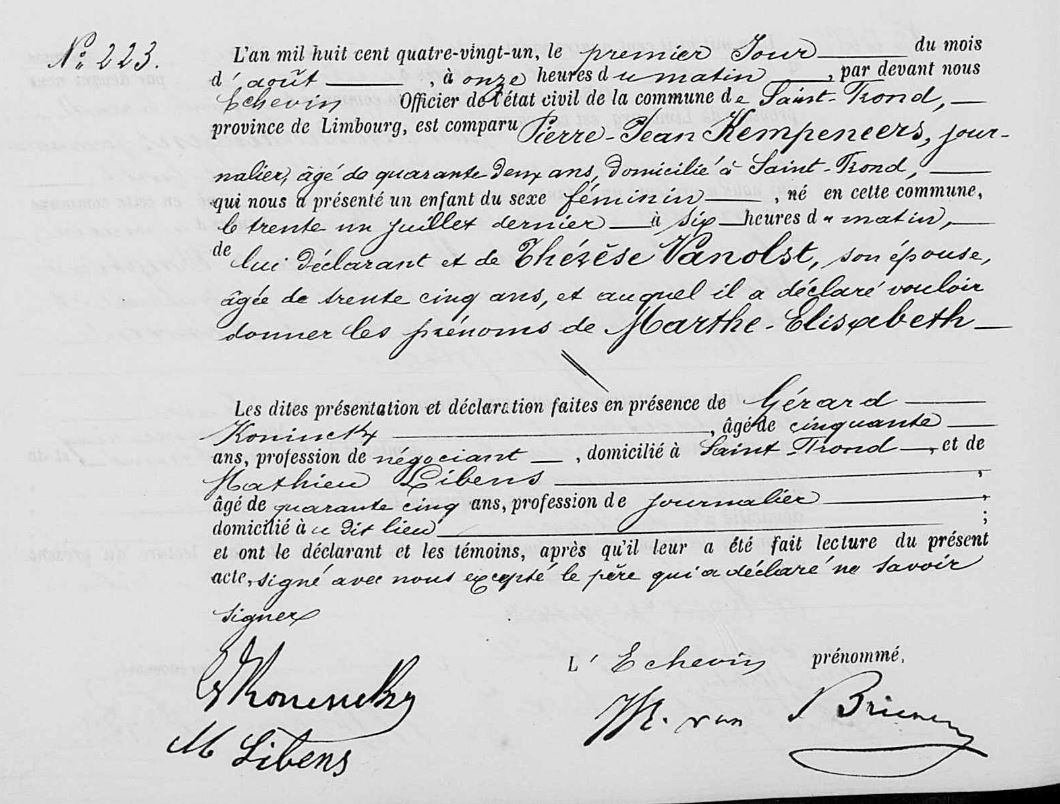 No 223.
L'an mil huit cent quatre-vingt-un, le premier Jour du mois
d'août, à onze heures du matin, par devant nous
Echevin Officier de l'état civil de la commune de Saint-Trond,
province de Limbourg, est comparu Pierre-Jean Kempeneers, jour-
nalier, âgé de quarante deux ans, domicilié à Saint-Trond,
qui nous a présenté un enfant du sexe féminin, né en cette commune,
le trente un juillet dernier à six heures du matin,
de lui déclarant et de Thérèse Vanolst, son épouse,
âgée de trente cinq ans, et auquel il a déclaré vouloir
donner les prénoms de Marthe-Elisabeth
Les dites présentation et déclaration faites en présence de Gérard
Koninckx, âgé de cinquante
ans, profession de négociant, domicilié à Saint Trond, et de
Mathieu Libens,
âgé de quarante cinq ans, profession de journalier,
domicilié à u dit lieu;
et ont le déclarant et les témoins, après qu'il leur a été fait lecture du présent
acte, signé avec nous excepté le père qui a déclaré ne savoir
signer
L'Echevin prénommé,
G Koninckx
M Libens
van Brienen